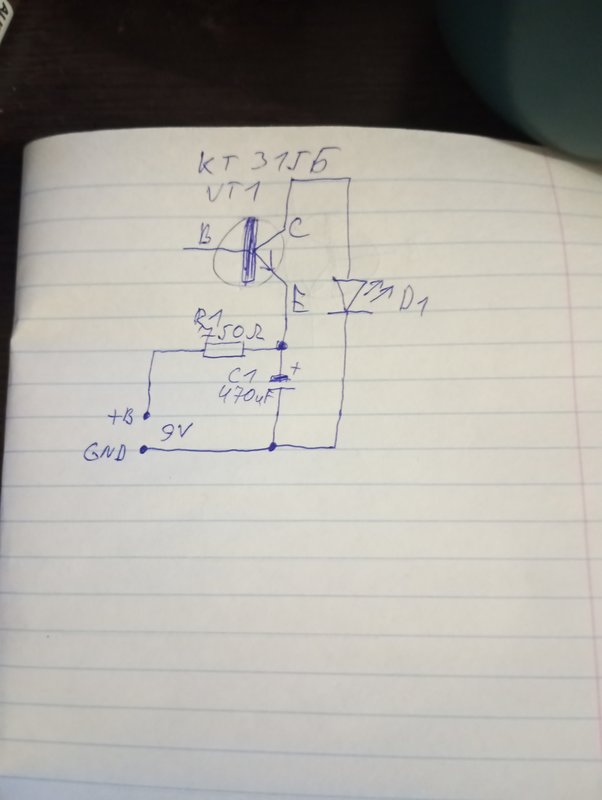 КТ 315Б
VT1
B
C
E
R1
750Ω
D1
C1
+
470uF
+B
9V
GND